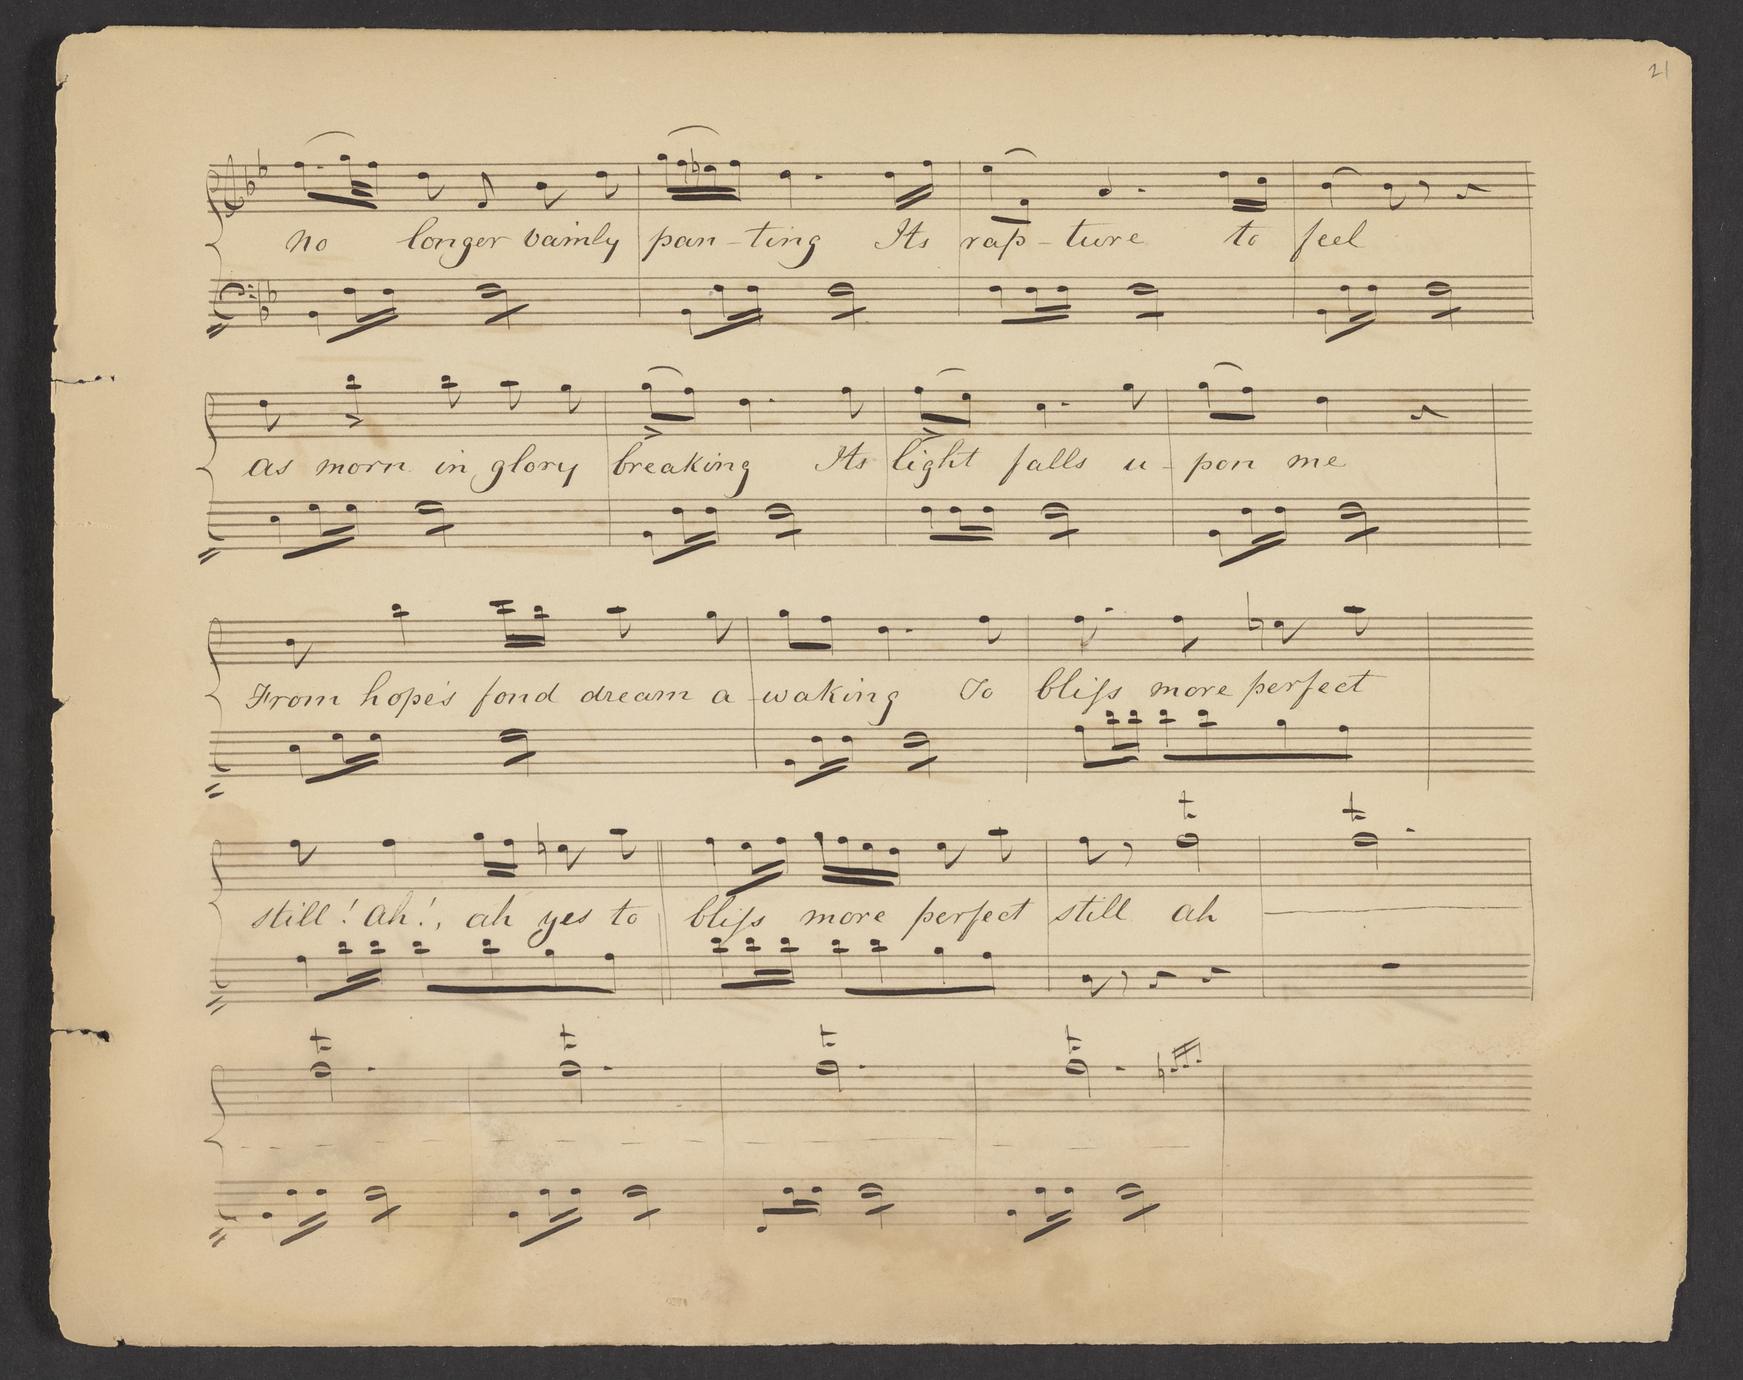 21
no longer vainly pan-ting Its rap-ture to feel
as morn in glory breaking Its light falls u-pon me
From hope's fond dream a-waking To bliſs more perfect
still! ah!, ah yes to bliſs more perfect still ah